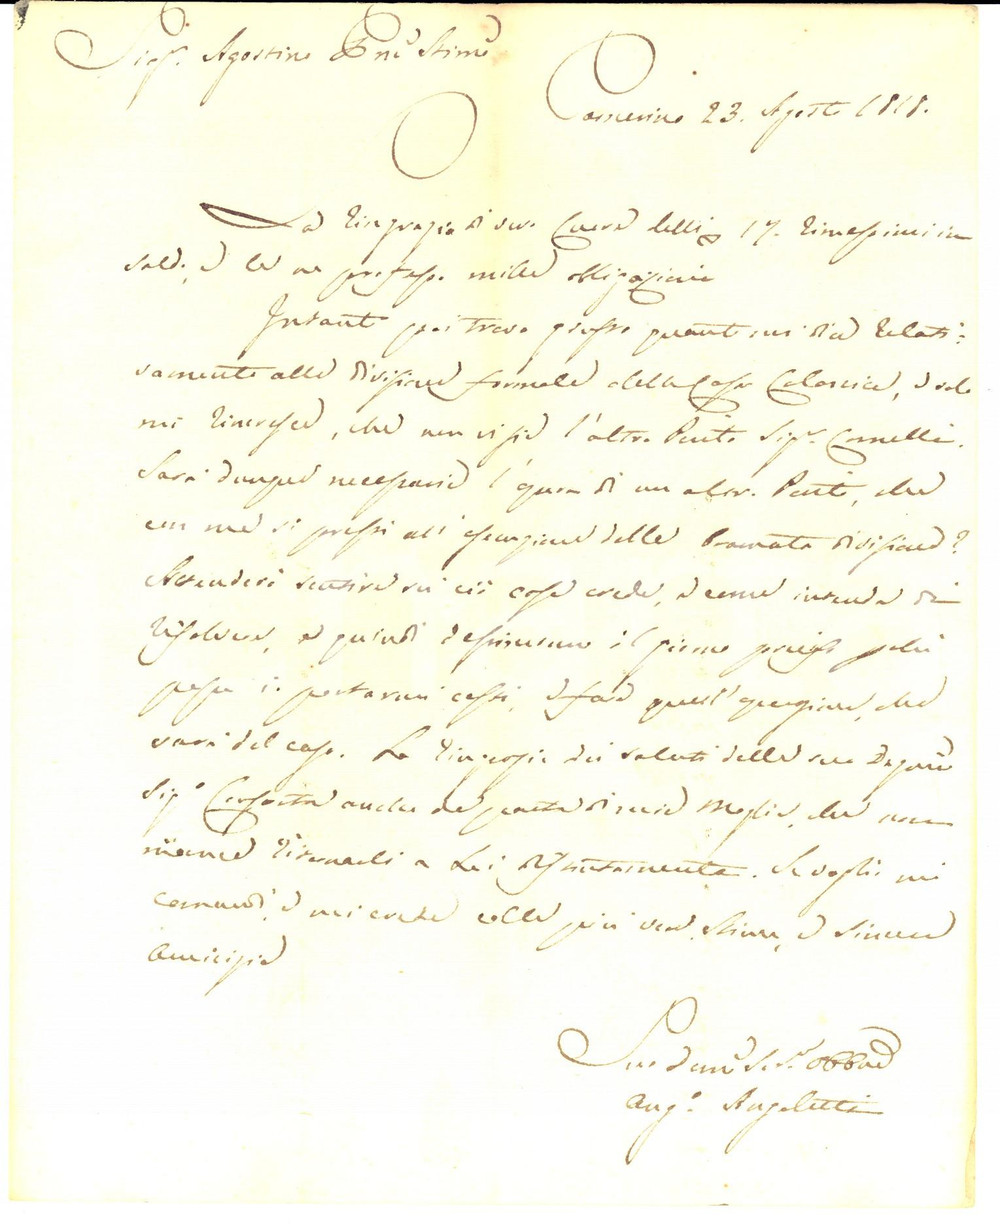 Sig.r Agostino Stimo
Camerino 23. Agosto 1818.
La ringrazio di sua cura delli 17. rimessimi in
saldo, e le ne professo mille obbligazioni
Intanto poi trovo giusto quanto mi dice relati-
vamente alla divisione formale della Casa, e solo
mi rincresce, che non vi sia l'altro Perito Sig.r Connelli.
Sarà dunque necessaria l'opera di un altro Perito, che
con me si presti all'esecuzione della bramata divisione?
Attenderò sentire su ciò cosa crede, e come intenda di
risolvere, e quindi il giorno preciso
possa io portarmi costì, e fare quell'operazione, che
sarà del caso. La ringrazio dei saluti della sua Degna
Sig.a anche da parte di mia Moglie, che non
manca ritornarli a Lei distintamente. Se vaglio mi
comandi, e mi creda colla più vera stima, e sincera
Amicizia
Suo Dev.mo Ser.e Obb.mo
Ang.o Angeletti